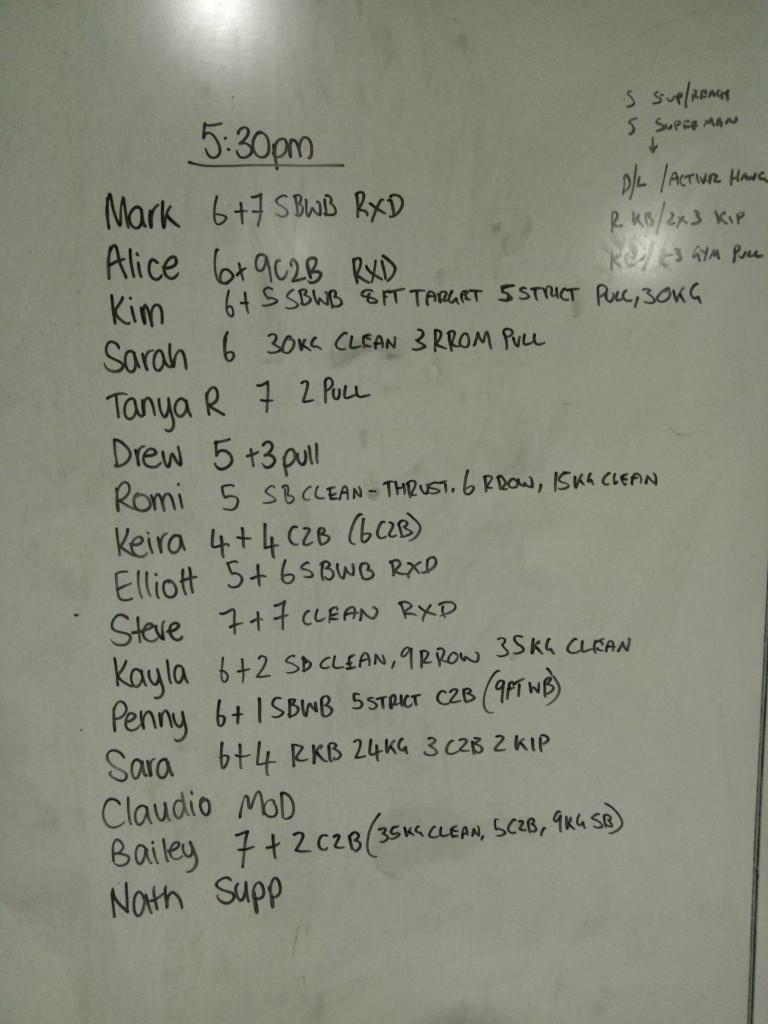 5:30pm
Mark 6+7 SBWB RXD
Alice 6+9C2B RXD
Kim 6+5 SBWB 8FT TARGET 5 STRICT PULL, 30KG
Sarah 6 30KG CLEAN 3 RROM PULL
Tanya R 7 2 PULL
Drew 5 +3 pull
Romi 5 SB CLEAN-THRUST. 6 RROW, 15KG CLEAN
Keira 4+4 C2B (6C2B)
Elliott 5+6 SBWB RXD
Steve 7+7 CLEAN RXD
Kayla 6+2 SB CLEAN, 9 RROW 35KG CLEAN
Penny 6+1 SBWB 5 STRICT C2B (9FT WB)
Sara 6+4 RKB 24KG 3 C2B 2 KIP
Claudio MOD
Bailey 7+2 C2B (35KG CLEAN, 5C2B, 9KG SB)
Nath Supp
5 S-up/REACH
5 SUPERMAN
↓
D/L /ACTIVE HANG
R KB/2x3 KIP
GYM PULL